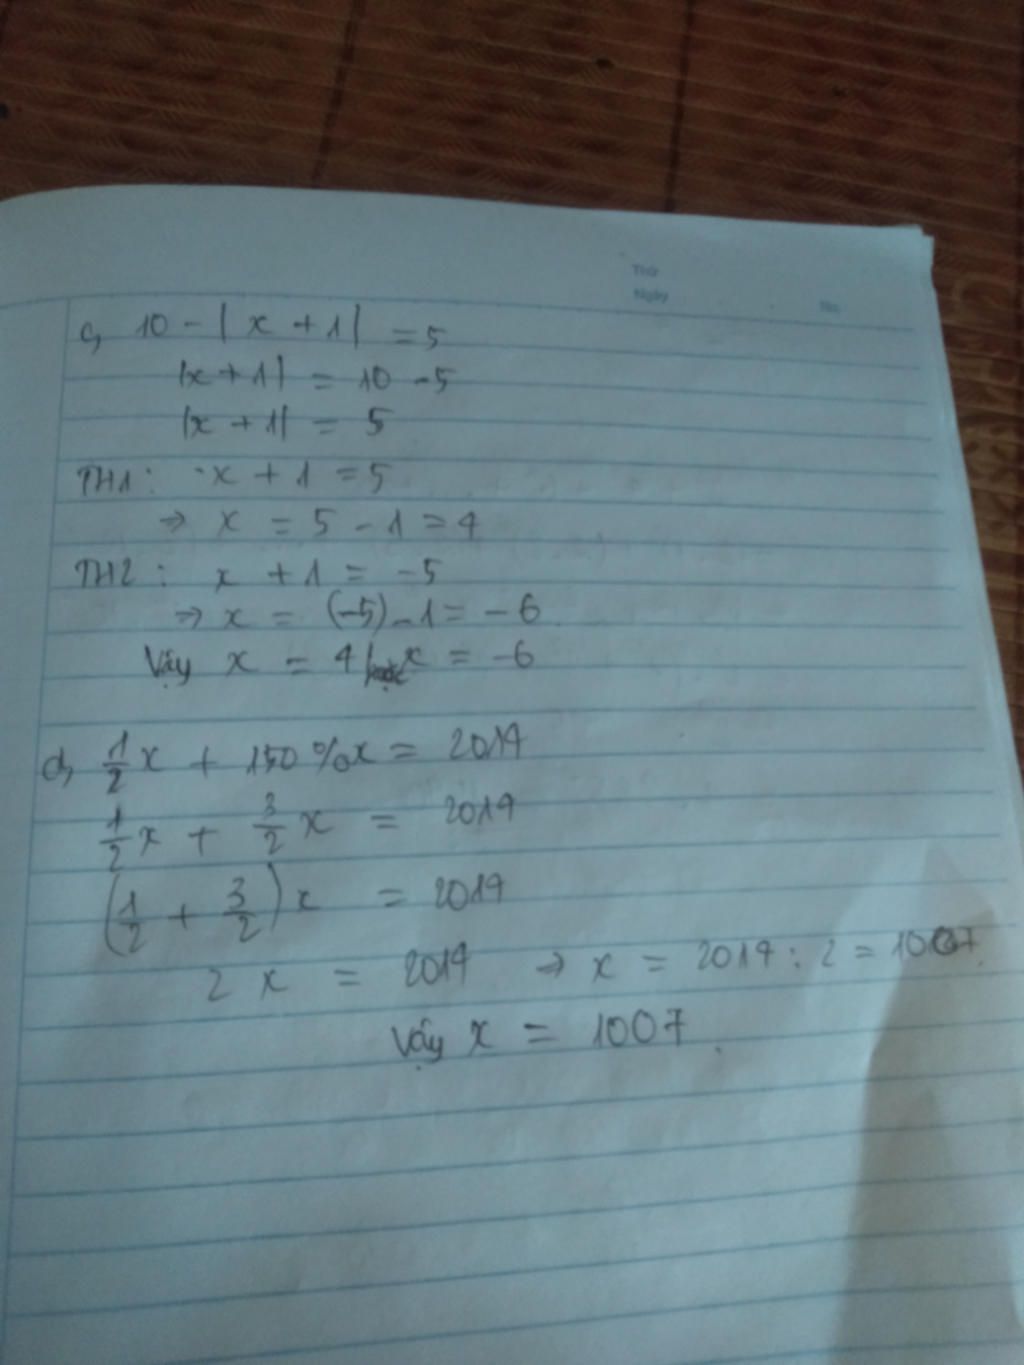 Thứ
Ngày
No.
c, 10 - | x + 1 | = 5
|x + 1| = 10 - 5
|x + 1| = 5
TH1 : x + 1 = 5
⇒ x = 5 - 1 = 4
TH2 : x + 1 = -5
⇒ x = (-5) - 1 = -6
Vậy x = 4 hoặc x = -6
d, 1/2 x + 150 % x = 2014
1/2 x + 3/2 x = 2014
(1/2 + 3/2) x = 2014
2 x = 2014 ⇒ x = 2014 : 2 = 1007.
Vậy x = 1007.